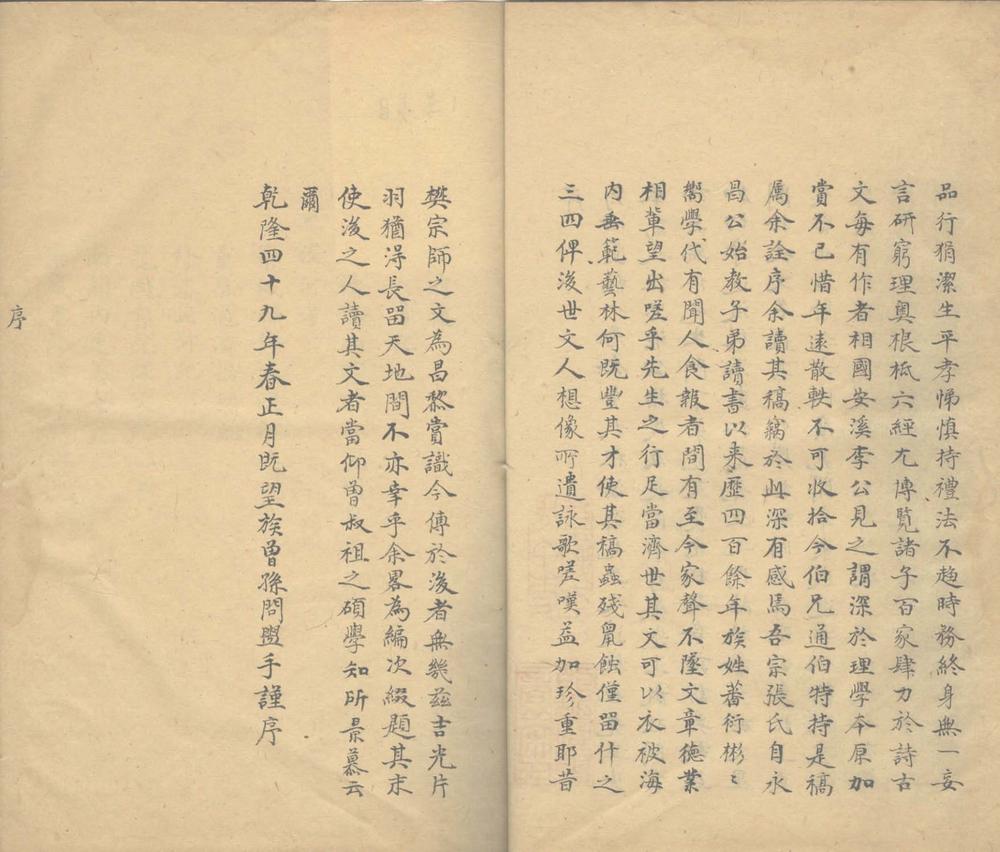 品行狷潔生平孝悌慎持禮法不趨時務終身無一妄
言研窮理奧根柢六經尤博覽諸子百家肆力於詩古
文每有作者相國安溪李公見之謂深於理學本原加
賞不已惜年遠散軼不可收拾今伯兄通伯特持是稿
屬余詮序余讀其稿竊於此深有感焉吾宗張氏自永
昌公始教子弟讀書以来歷四百餘年族姓蕃衍彬〻
嚮學代有聞人食報者間有至今家聲不墜文章德業
相軰望出嗟乎先生之行足當濟世其文可以衣被海
内垂範藝林何既豐其才使其稿蟲殘鼠蝕僅留什之
三四俾後世文人想像所遺詠歌嗟嘆益加珍重耶昔
樊宗師之文為昌黎賞識今傳於後者無幾茲吉光片
羽猶得長留天地間不亦幸乎余畧為編次綴題其末
使後之人讀其文者當仰曽叔祖之碩學知所景慕云
爾
乾隆四十九年春正月既望族曽孫問盟手謹序
序